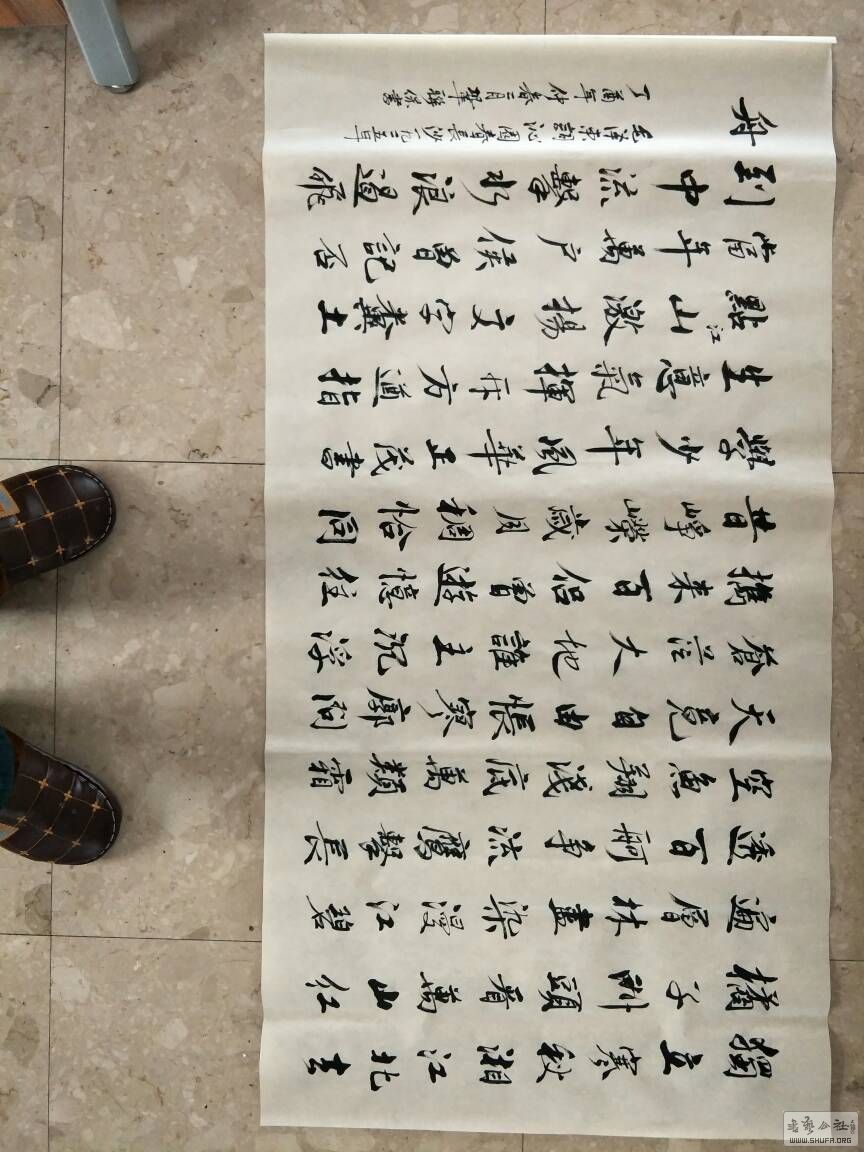 獨立寒秋湘江北去
橘子洲頭看萬山紅
遍層林盡染漫江碧
透百舸爭流鷹擊長
空魚翔淺底萬類霜
天競自由悵寥廓問
蒼茫大地誰主沉浮
攜來百侶曾遊憶往
昔崢嶸歲月稠恰同
學少年風華正茂書
生意氣揮斥方遒指
點江山激揚文字糞土
當年萬戶侯曾記否
到中流擊水浪遏飛
舟
毛澤東詞沁園春長沙一九二五年
丁酉年仲春二月聯保書
书艺公社
WWW.SHUFA.ORG